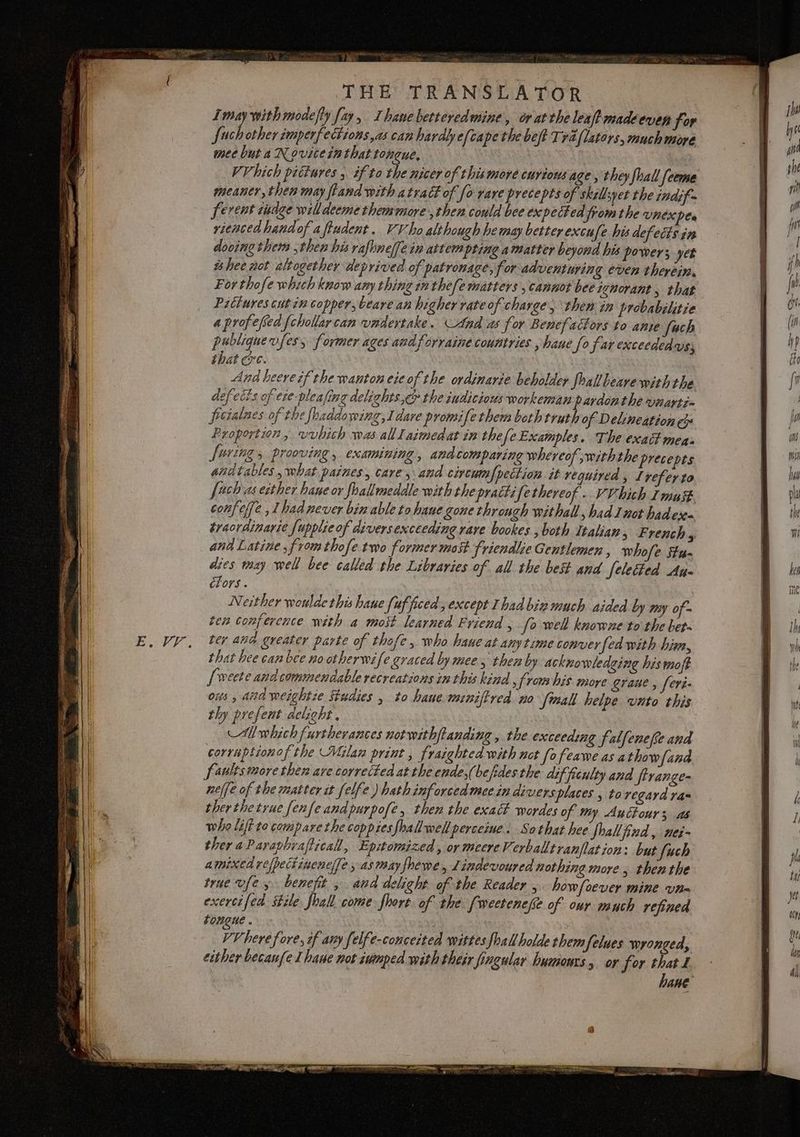 THE TRANSLATOR
I may with modesty say, I haue bettered mine, or at the least made euen for
such other imperfections, as can hardly escape the best Trāslators, much more
mee but a Nouice in that tongue.
VVhich pictures, if to the nicer of this more curious age, they shall seeme
meaner, then may stand with a tract of so rare precepts of skill; yet the indif-
ferent iudge will deeme them more, then could bee expected from the vnexpe-
rienced hand of a student. VVho although he may better excuse his defects in
dooing them, then his rashnesse in attempting a matter beyond his power; yet
is hee not altogether deprived of patronage, for adventuring even therein.
For those which know any thing in these matters, cannot bee ignorant, that
Pictures cut in copper, beare an higher rate of charge, then in probabilitie
a professed schollar can vndertake. And as for Benefactors to anie such
publique vses, former ages and forraine countries, haue so far exceeded vs,
that &c.
And heere if the wanton eie of the ordinarie beholder shall beare with the
defects of eie-pleasing delights, & the iudicious workeman pardon the vnarti-
ficialnes of the shaddowing, I dare promise them both truth of Delineation &
Proportion, vvhich was all I aimed at in these Examples. The exact mea-
suring, prooving, examining, and comparing whereof, with the precepts
and tables, what paines, care, and circumspection it required, I refer to
such as either haue or shall meddle with the practise thereof. VVhich I must
confesse, I had never bin able to haue gone through withall, had I not had ex-
traordinarie supplie of divers exceeding rare bookes, both Italian, French,
and Latine, from those two former most friendlie Gentlemen, whose Stu-
dies may well bee called the Libraries of all the best and selected Au-
ctors.
Neither woulde this haue sufficed, except I had bin much aided by my of-
ten conference with a most learned Friend, so well knowne to the bet-
E. VV. ter and greater parte of those, who haue at any time conversed with him,
that hee can bee no otherwise graced by mee, then by acknowledging his most
sweete and commendable recreations in this kind, from his more graue, seri-
ous, and weightie Studies, to haue ministred no small helpe vnto this
thy present delight.
All which furtherances notwithstanding, the exceeding falsenesse and
corruption of the Milan print, fraighted with not so feawe as a thowsand
faults more then are corrected at the ende, (besides the difficulty and strange-
nesse of the matter it selfe) hath inforced mee in divers places, to regard ra-
ther the true sense and purpose, then the exact wordes of my Auctour; as
who list to compare the coppies shall well perceiue. So that hee shall find, nei-
ther a Paraphrasticall, Epitomized, or meere Verball translation: but such
a mixed respectiuenesse, as may shewe, I indevoured nothing more, then the
true vse, benefit, and delight of the Reader, howsoever mine vn-
exercised stile shall come short of the sweetenesse of our much refined
tongue.
VVherefore, if any selfe-conceited wittes shall holde themselues wronged,
either because I haue not iumped with their singular humours, or for that I
haue